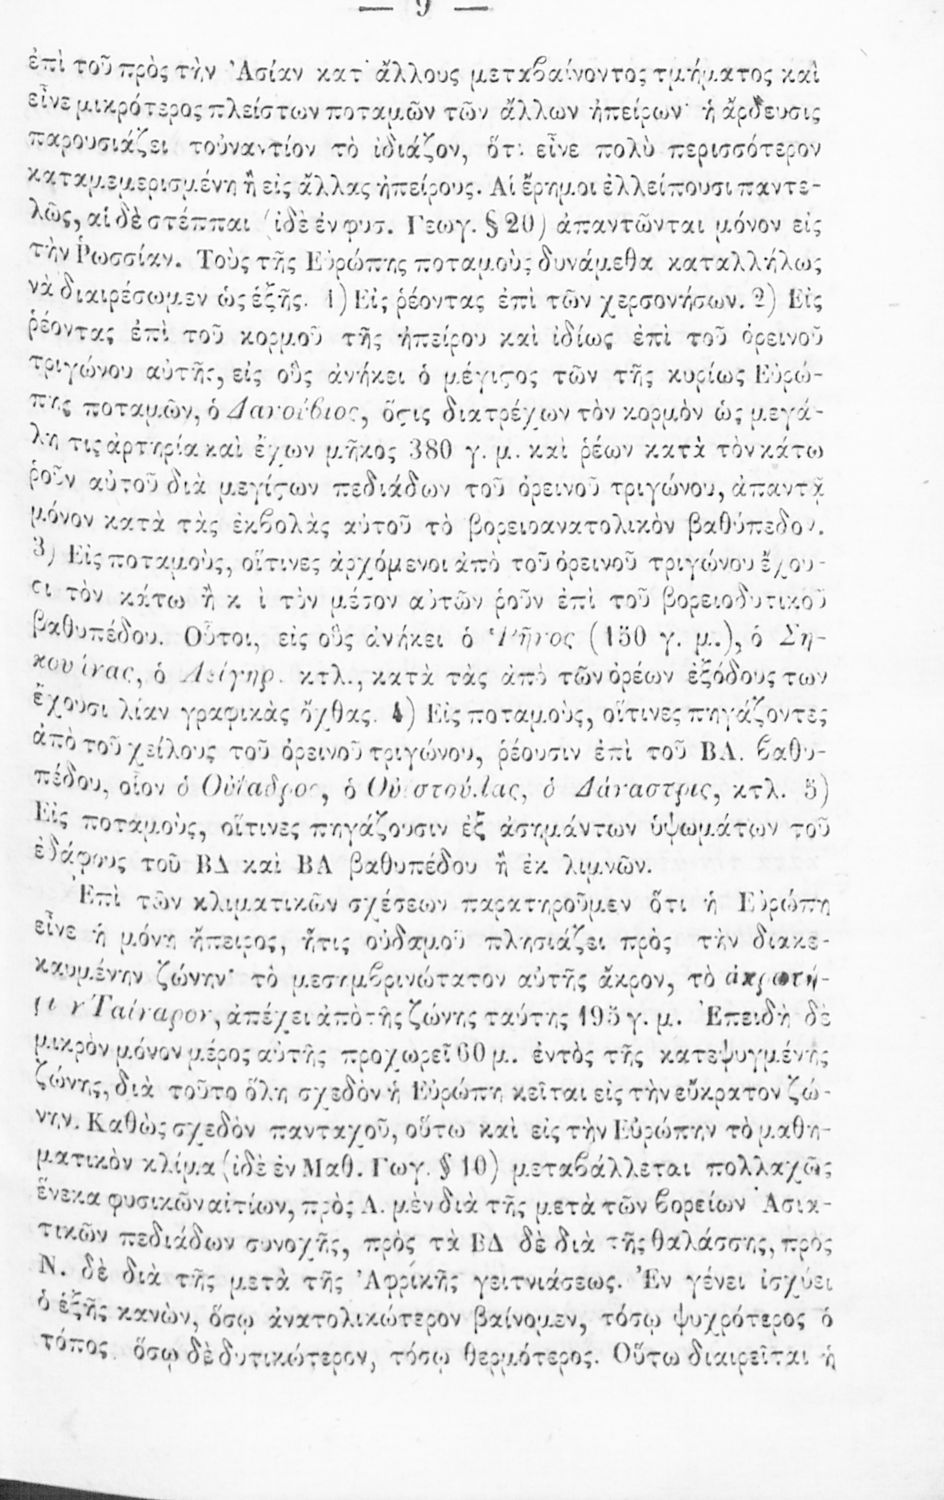 — 9 —
ἐπὶ τοῦ πρὸς τὴν Ἀσίαν κατ' ἄλλους μεταβαίνοντος τμήματος καὶ
εἶνε μικρότερος πλείστων ποταμῶν τῶν ἄλλων ἠπείρων· ἡ ἄρδευσις
παρουσιάζει τοὐναντίον τὸ ἰδιάζον, ὅτι εἶνε πολὺ περισσότερον
καταμεμερισμένη ἢ εἰς ἄλλας ἠπείρους. Αἱ ἔρημοι ἐλλείπουσι παντε-
λῶς, αἱ δὲ στέππαι (ἰδὲ ἐν φυσ. Γεωγ. § 20) ἀπαντῶνται μόνον εἰς
τὴν Ῥωσσίαν. Τοὺς τῆς Εὐρώπης ποταμοὺς δυνάμεθα καταλλήλως
νὰ διαιρέσωμεν ὡς ἑξῆς. 1) Εἰς ῥέοντας ἐπὶ τῶν χερσονήσων. 2) Εἰς
ῥέοντας ἐπὶ τοῦ κορμοῦ τῆς ἠπείρου καὶ ἰδίως ἐπὶ τοῦ ὀρεινοῦ
τριγώνου αὐτῆς, εἰς οὓς ἀνήκει ὁ μέγιςος τῶν τῆς κυρίως Εὐρώ-
πης ποταμῶν, ὁ Δανούβιος, ὅςις διατρέχων τὸν κορμὸν ὡς μεγά-
λη τις ἀρτηρία καὶ ἔχων μῆκος 380 γ. μ. καὶ ῥέων κατὰ τὸν κάτω
ῥοῦν αὐτοῦ διὰ μεγίςων πεδιάδων τοῦ ὀρεινοῦ τριγώνου, ἀπαντᾷ
μόνον κατὰ τὰς ἐκβολὰς αὐτοῦ τὸ βορειοανατολικὸν βαθύπεδον.
3) Εἰς ποταμοὺς, οἵτινες ἀρχόμενοι ἀπὸ τοῦ ὀρεινοῦ τριγώνου ἔχου-
σι τὸν κάτω ἢ κ ὶ τὸν μέσον αὐτῶν ῥοῦν ἐπὶ τοῦ βορειοδυτικοῦ
βαθυπέδου. Οὗτοι, εἰς οὓς ἀνήκει ὁ Ῥῆνος (150 γ. μ.), ὁ Ση-
κουάνας, ὁ Λείγηρ. κτλ., κατὰ τὰς ἀπὸ τῶν ὀρέων ἐξόδους των
ἔχουσι λίαν γραφικὰς ὄχθας. 4) Εἰς ποταμοὺς, οἵτινες πηγάζοντες
ἀπὸ τοῦ χείλους τοῦ ὀρεινοῦ τριγώνου, ῥέουσιν ἐπὶ τοῦ ΒΑ. βαθυ-
πέδου, οἷον ὁ Οὐΐαδρος, ὁ Οὐιστούλας, ὁ Δάναστρις, κτλ. 5)
Εἰς ποταμοὺς, οἵτινες πηγάζουσιν ἐξ ἀσημάντων ὑψωμάτων τοῦ
ἐδάφους τοῦ ΒΔ καὶ ΒΑ βαθυπέδου ἢ ἐκ λιμνῶν.
Ἐπὶ τῶν κλιματικῶν σχέσεων παρατηροῦμεν ὅτι ἡ Εὐρώπη
εἶνε ἡ μόνη ἤπειρος, ἥτις οὐδαμοῦ πλησιάζει πρὸς τὴν διακε-
καυμένην ζώνην· τὸ μεσημβρινώτατον αὐτῆς ἄκρον, τὸ ἀκρωτή-
ριον Ταίναρον, ἀπέχει ἀπὸ τῆς ζώνης ταύτης 195 γ. μ. Ἐπειδὴ δὲ
μικρὸν μόνον μέρος αὐτῆς προχωρεῖ 60 μ. ἐντὸς τῆς κατεψυγμένης
ζώνης, διὰ τοῦτο ὅλη σχεδὸν ἡ Εὐρώπη κεῖται εἰς τὴν εὔκρατον ζώ-
νην. Καθὼς σχεδὸν πανταχοῦ, οὕτω καὶ εἰς τὴν Εὐρώπην τὸ μαθη-
ματικὸν κλίμα (ἰδὲ ἐν Μαθ. Γωγ. § 10) μεταβάλλεται πολλαχῶς
ἕνεκα φυσικῶν αἰτίων, πρὸς Α. μὲν διὰ τῆς μετὰ τῶν βορείων Ἀσια-
τικῶν πεδιάδων συνοχῆς, πρὸς τὰ ΒΔ δὲ διὰ τῆς θαλάσσης, πρὸς
Ν. δὲ διὰ τῆς μετὰ τῆς Ἀφρικῆς γειτνιάσεως. Ἐν γένει ἰσχύει
ὁ ἑξῆς κανὼν, ὅσῳ ἀνατολικώτερον βαίνομεν, τόσῳ ψυχρότερος ὁ
τόπος. ὅσῳ δὲ δυτικώτερον, τόσῳ θερμότερος. Οὕτω διαιρεῖται ἡ